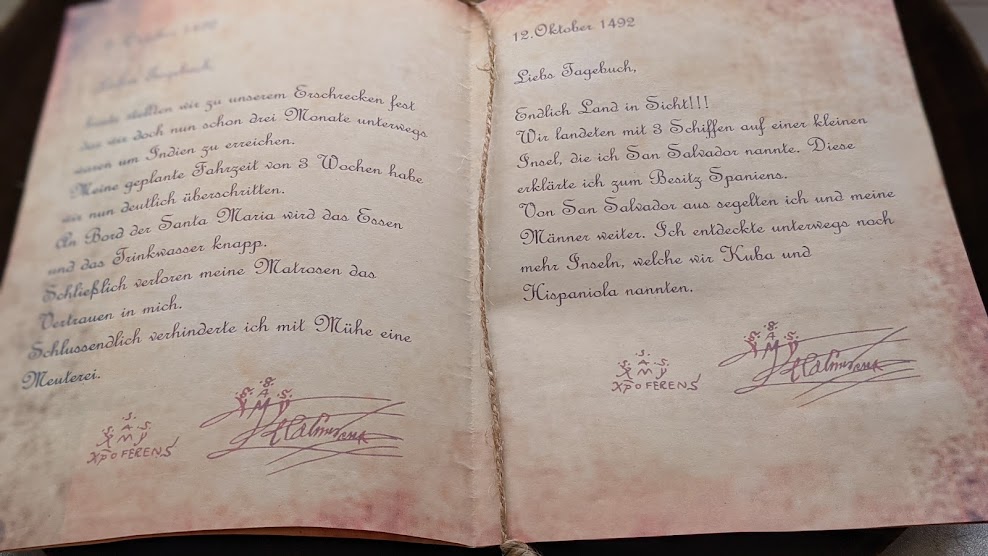 Oktober 1492
Tagebuch,
heute stellten wir zu unserem Erschrecken fest
das wir doch nun schon drei Monate unterwegs
waren um Indien zu erreichen.
Meine geplante Fahrzeit von 3 Wochen habe
wir nun deutlich überschritten.
An Bord der Santa Maria wird das Essen
und das Trinkwasser knapp.
Schließlich verloren meine Matrosen das
Vertrauen in mich.
Schlussendlich verhinderte ich mit Mühe eine
Meuterei.
.S.
.S. A .S.
X M Y
XPO FERENS
.S.
.S. A .S.
X M Y
12.Oktober 1492
Liebs Tagebuch,
Endlich Land in Sicht!!!
Wir landeten mit 3 Schiffen auf einer kleinen
Insel, die ich San Salvador nannte. Diese
erklärte ich zum Besitz Spaniens.
Von San Salvador aus segelten ich und meine
Männer weiter. Ich entdeckte unterwegs noch
mehr Inseln, welche wir Kuba und
Hispaniola nannten.
.S.
.S. A .S.
X M Y
XPO FERENS
.S.
.S. A .S.
X M Y